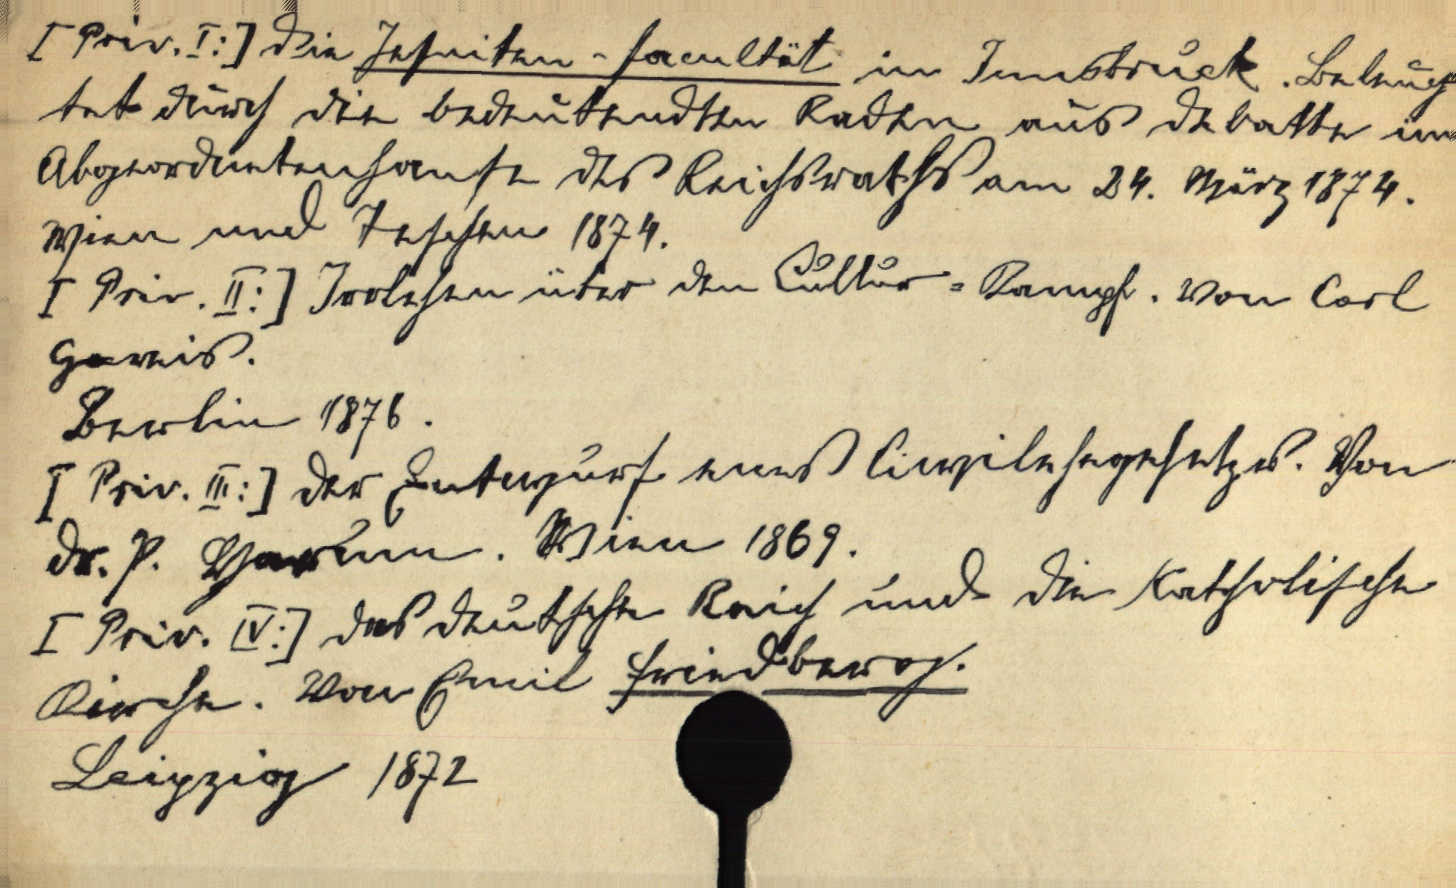 [Priv. I:] Die Jesuiten-Facultät in Innsbruck. Beleuch
tet durch die bedeutendsten Reden aus Debatte im
Abgeordnetenhause des Reichsraths am 24. März 1874.
Wien und Teschen 1874.
[Priv. II:] Irrlehren über den Cultur=Kampf. Von Carl
Gareis.
Berlin 1876.
[Priv. III:] Der Entwurf eines Civilehegesetzes. Von
Dr. P. Harum. Wien 1869.
[Priv. IV:] Das deutsche Reich und die Katholische
Kirche. Von Emil Friedberg.
Leipzig 1872